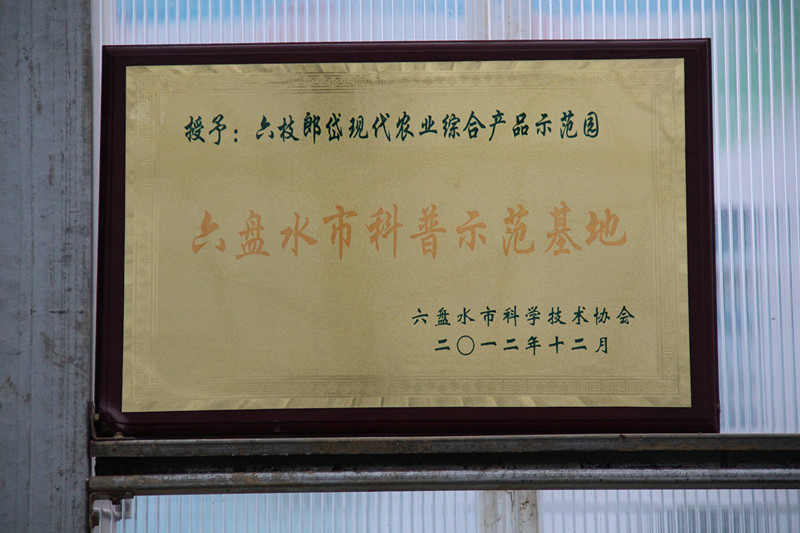 授予：六枝郎岱现代农业综合产品示范园
六盘水市科普示范基地
六盘水市科学技术协会
二〇一二年十二月